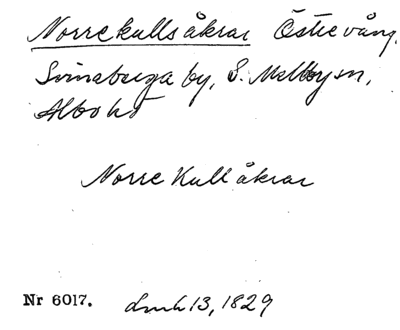 Norrekullsåkrar Östrevång,
Svinaberga by, S. Mellby sn,
Albo hd
Norre Kull åkrar
Nr 6017. lmh 13, 1829